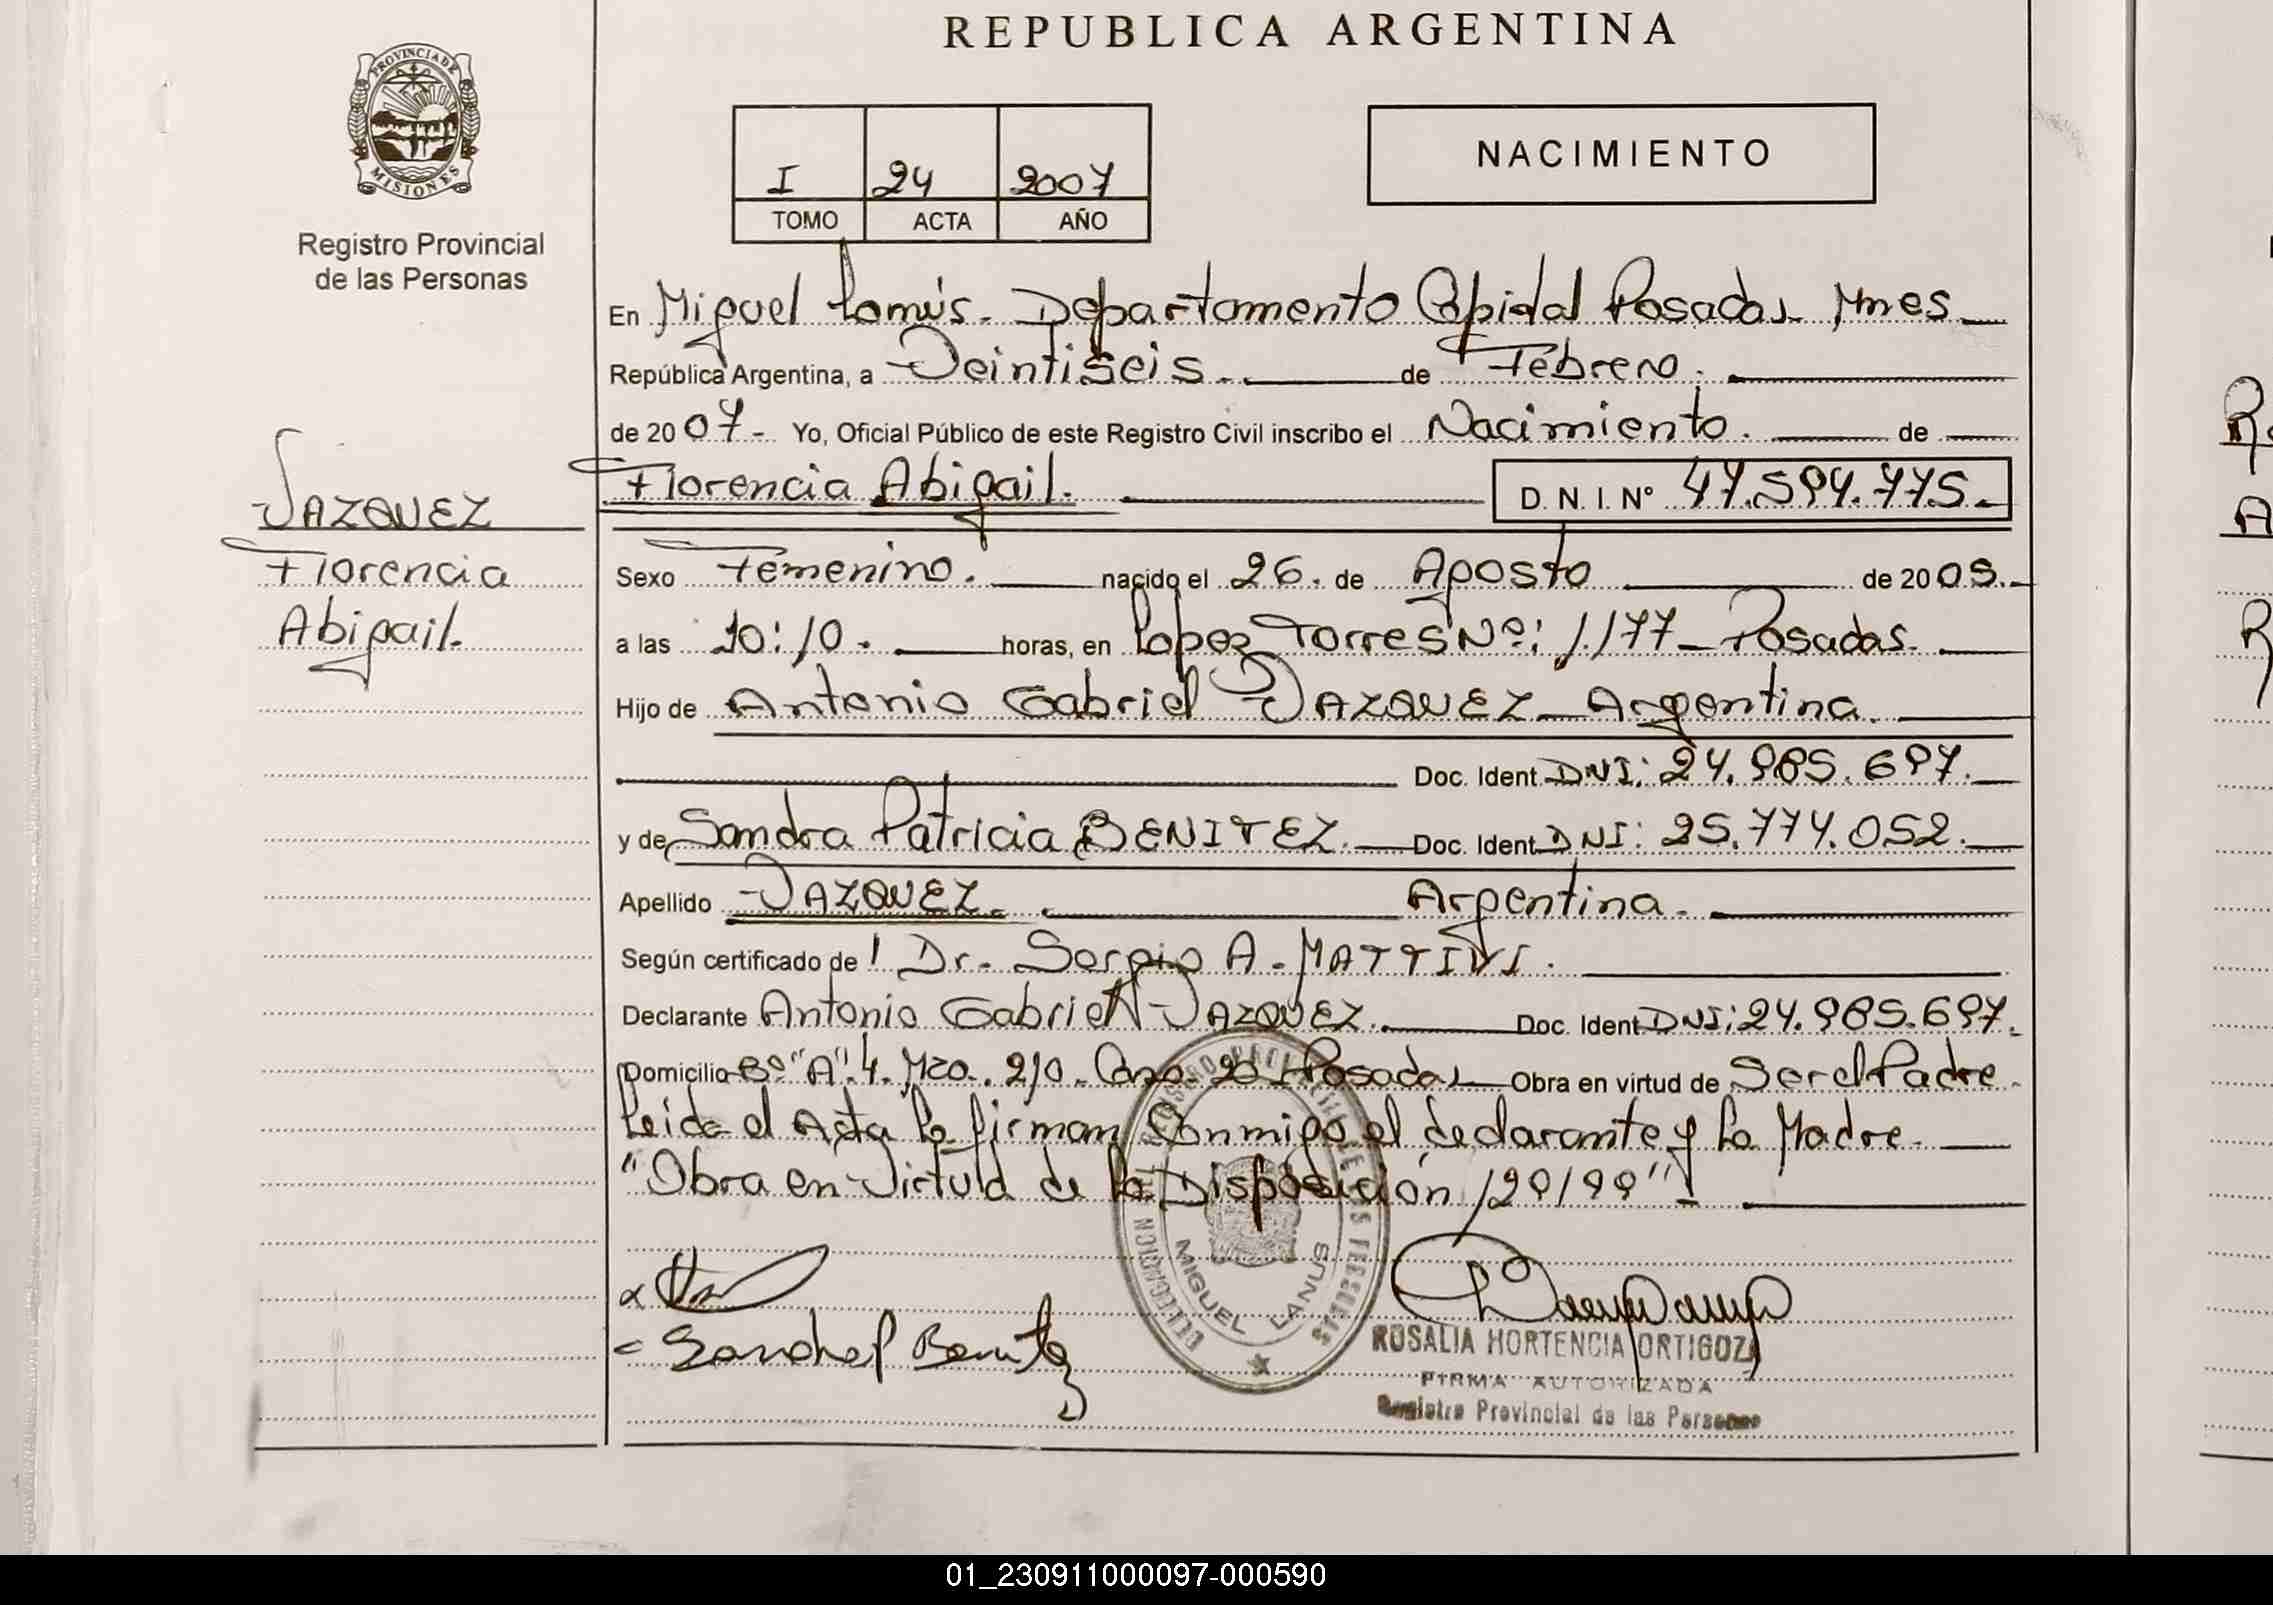 REPUBLICA ARGENTINA
PROVINCIA DE
MISIONES
Registro Provincial
de las Personas
I 24 2007
TOMO ACTA AÑO
NACIMIENTO
En Miguel Lanús. Departamento Capital Posadas Mnes
República Argentina, a Veintiseis. de Febrero.
de 2007. Yo, Oficial Público de este Registro Civil inscribo el Nacimiento. de
Florencia Abigail. D. N. I. Nº 47.594.775.
VAZQUEZ
Florencia
Abigail.
Sexo Femenino. nacido el 26. de Agosto de 2005.
a las 10:10. horas, en Lopez Torres Nº: 1.177 - Posadas.
Hijo de Antonio Gabriel VAZQUEZ - Argentina.
Doc. Ident. DNI: 24.985.697.
y de Sandra Patricia BENITEZ. Doc. Ident. DNI: 25.774.052.
Apellido VAZQUEZ. Argentina.
Según certificado de Dr. Sergio A. MATTIVI.
Declarante Antonio Gabriel VAZQUEZ. Doc. Ident. DNI: 24.985.697.
Domicilio Bº "A".4. Mza. 210. Casa. 20 Posadas Obra en virtud de Ser el Padre.
Leida el Acta la firman Conmigo el declarante y la Madre.
"Obra en Virtud de la Disposición 129/99"
DELEGACION
MIGUEL LANUS
ROSALIA HORTENCIA ORTIGOZA
FIRMA AUTORIZADA
Registro Provincial de las Personas
01_230911000097-000590